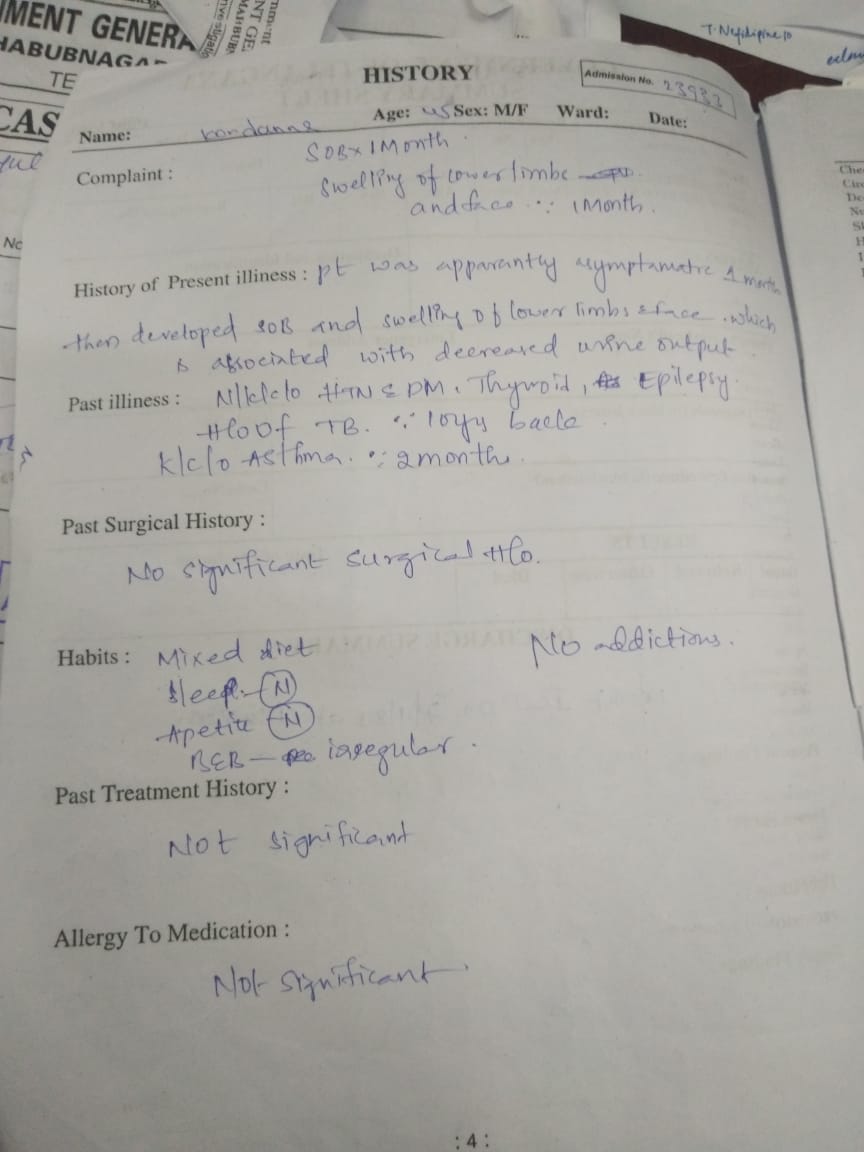 MENT GENERA
HABUBNAGAR
TE
CAS
No
T. Nefidipine 10
HISTORY
Admission No. 23932
Name: Kondanna Age: 45 Sex: M/F Ward: Date:
Complaint : SOB x 1 Month
Swelling of lower limbs
and face ∵ 1 Month.
History of Present illness : pt was apparantly asymptamatic 1 month
then developed SOB and swelling of lower limbs & face. which
is associated with decreased urine output
Past illness : N/k/c/o HTN & DM, Thyroid, Epilepsy
H/o of TB. ∵ 10yrs back
K/c/o Asthma. ∵ 2 month.
Past Surgical History :
No significant surgical H/o.
Habits : Mixed diet No addictions.
Sleep - N
Apetite N
B&B - irregular.
Past Treatment History :
Not significant
Allergy To Medication :
Not significant.
: 4 :